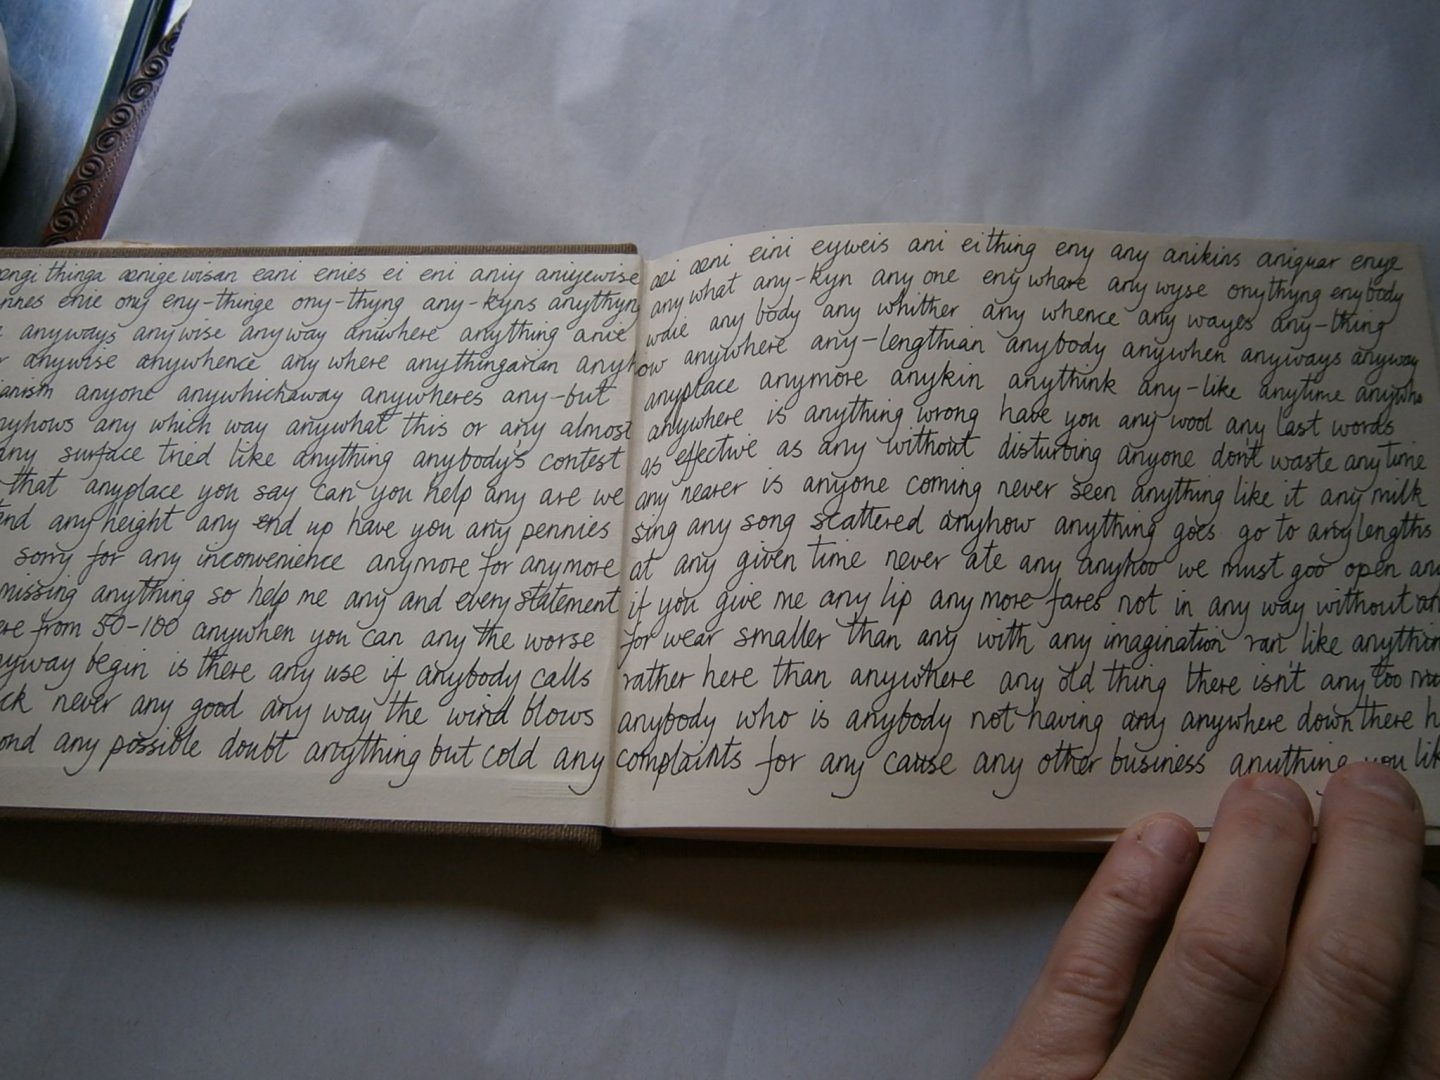 thinga aenige wisan eani enies ei eni aniy aniyewise
enie ony eny-thinge ony-thyng any-kyns anythyng
anyways anywise anyway aniwhere anything anie
anywise anywhence any where anythingarian anyhow
anyone anywhichaway anywheres any-but
any which way anywhat this or any almost
any surface tried like anything anybody's contest
that anyplace you say can you help any are we
any height any end up have you any pennies
sorry for any inconvenience anymore for anymore
missing anything so help me any and every statement
from 50-100 anywhen you can any the worse
begin is there any use if anybody calls
never any good any way the wind blows
any possible doubt anything but cold any
aei aeni eini eyweis ani ei thing eny any anikins aniguar enye
any what any-kyn any one eny whare any wyse onythyng enybody
any body any whither any whence any wayes any-thing
anywhere any-lengthian anybody anywhen anyways anyway
anyplace anymore anykin anythink any-like anytime
anywhere is anything wrong have you any wool any last words
as effective as any without disturbing anyone don't waste any time
any nearer is anyone coming never seen anything like it any milk
sing any song scattered anyhow anything goes go to any lengths
at any given time never ate any anyhoo we must goo open
if you give me any lip any more fares not in any way without
for wear smaller than any with any imagination ran like anything
rather here than anywhere any old thing there isn't any too
anybody who is anybody not having any anywhere down there
complaints for any cause any other business anything you